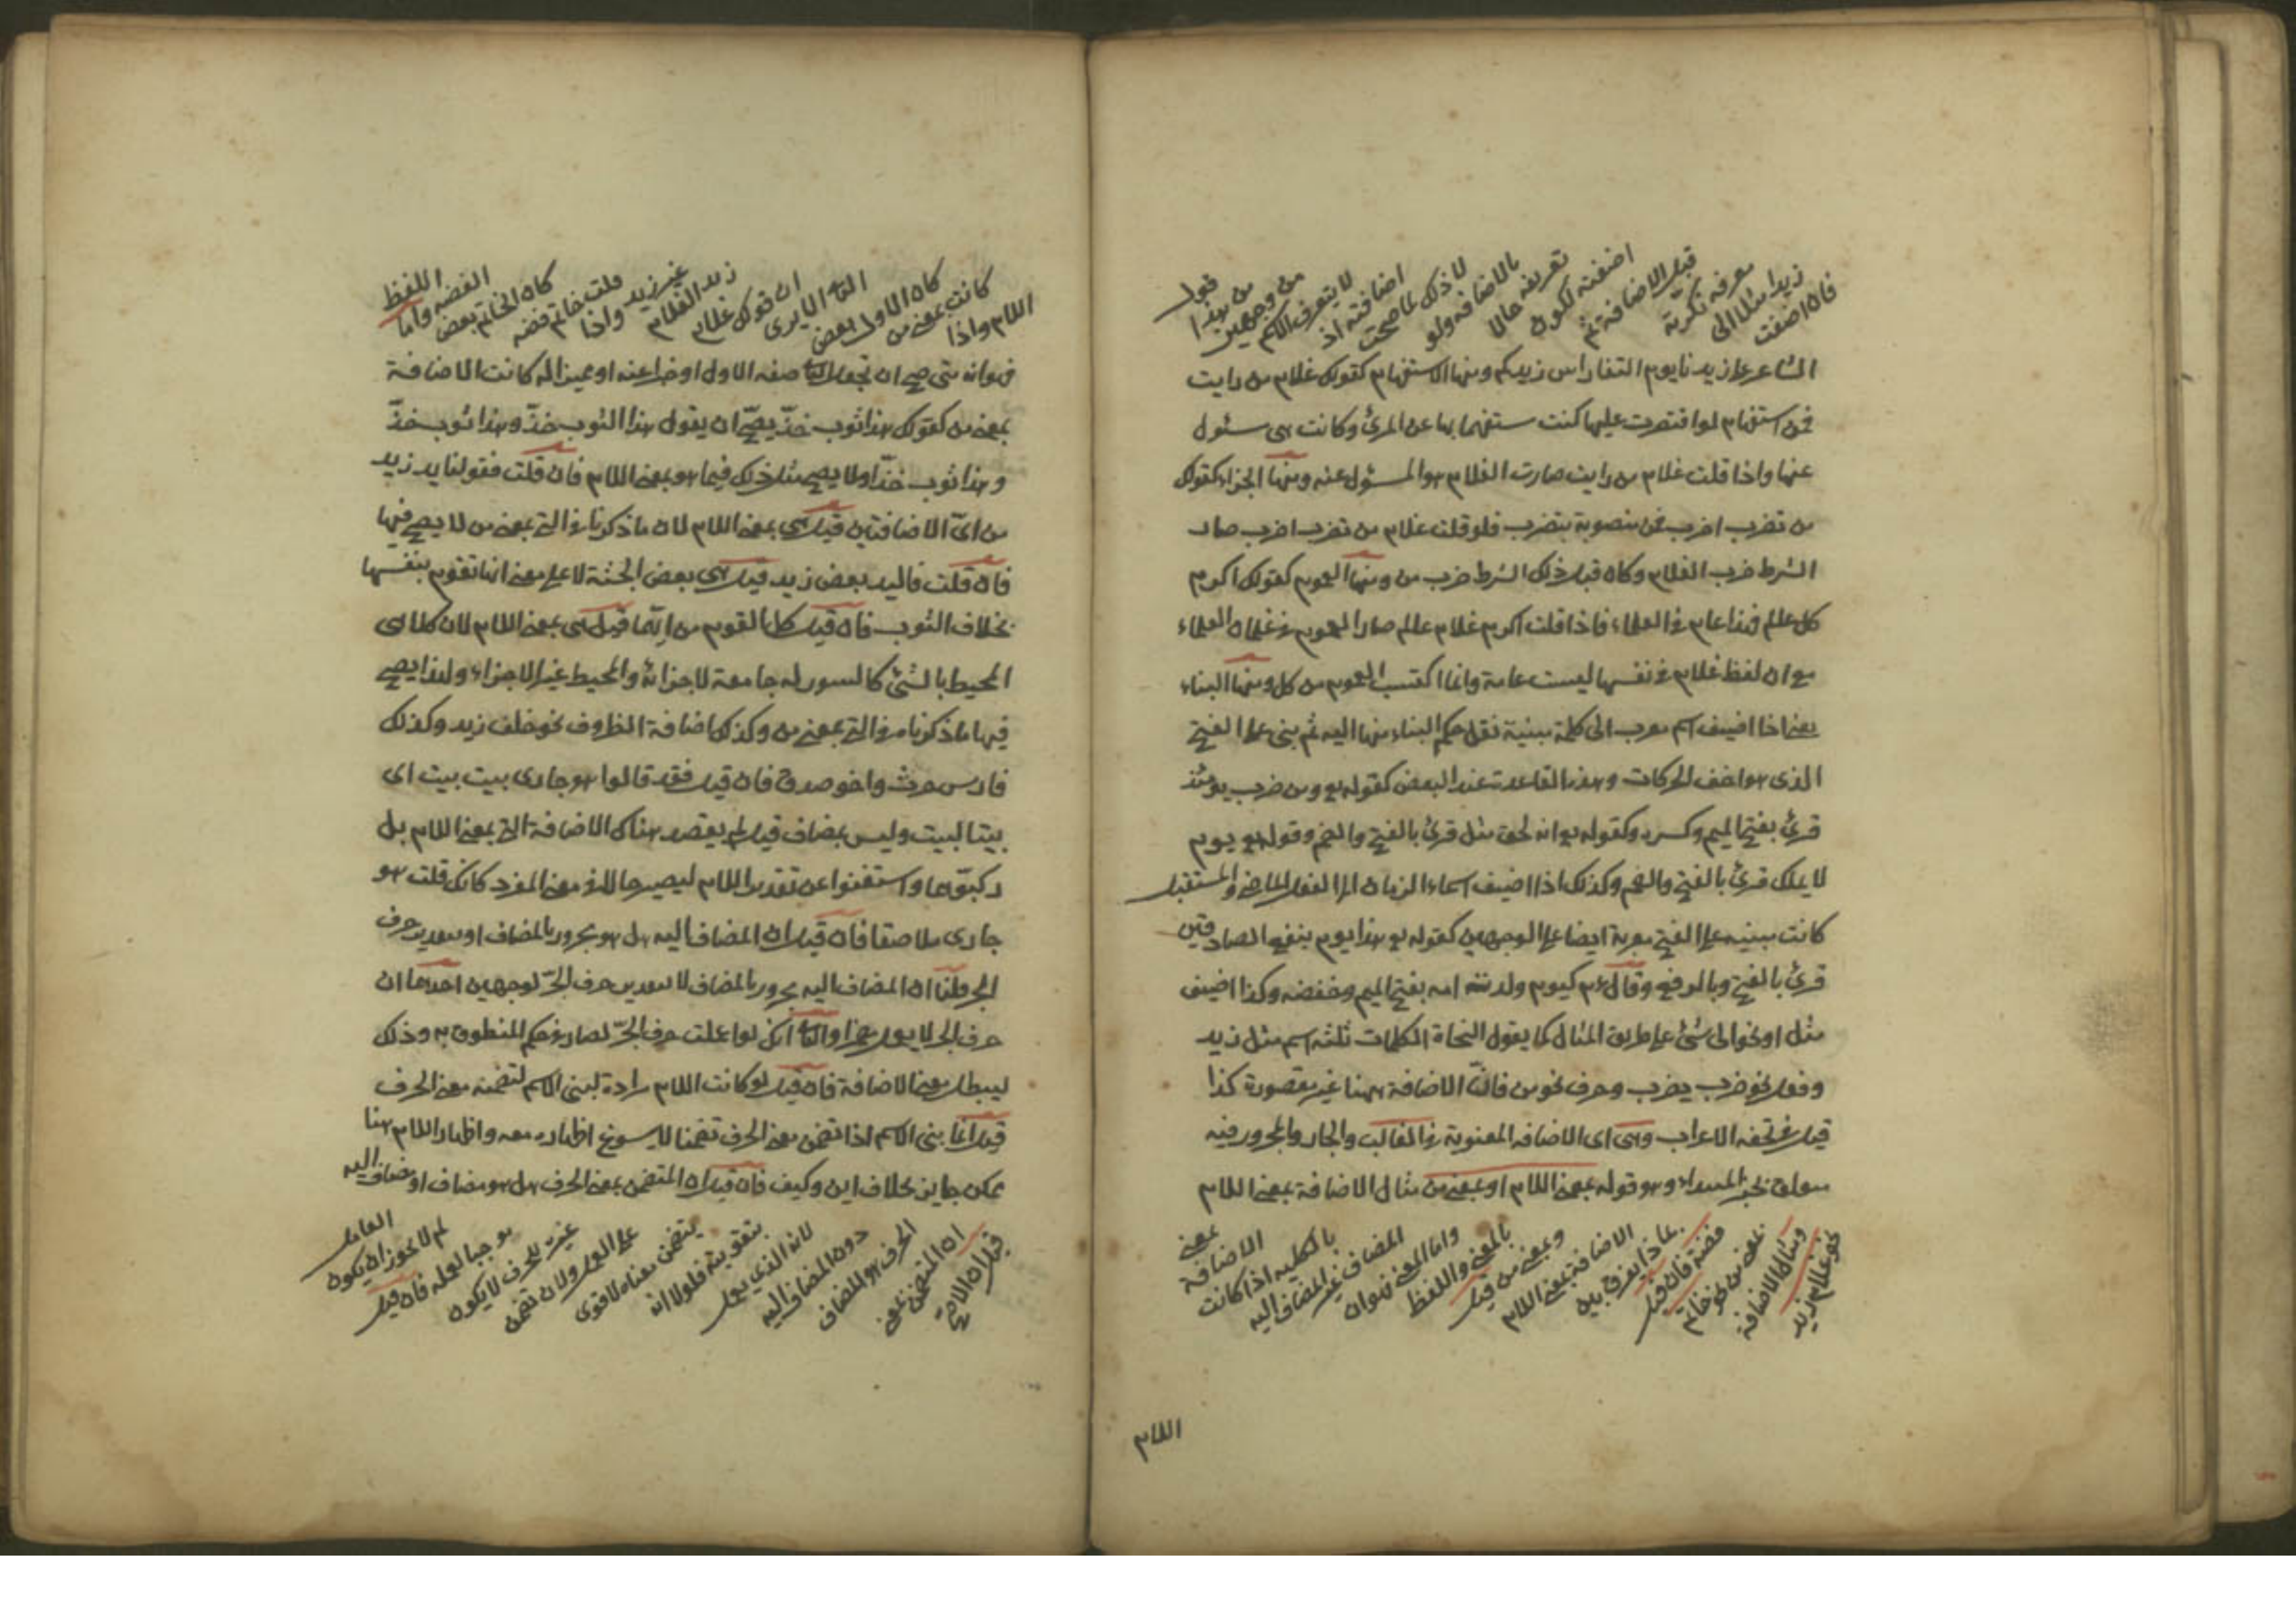 فان اضفت
زيدا مثلا الى
معرفه نكرته
قبل الاضافة ثم
اضفته لكون
تعريفه حالا
بالاضافه ولو
لا ذلك لما صحت
اضافته اذ
لا يتعرف الاسم
من وجهين
من هذا
قول
الشاعر علا زيدنا يوم النقا راس زيدكم ومنها الاستفهام كقولك غلام من رايت
فمن استفهام لو اقتصرت عليها كنت مستفهما بها عن المرئ وكانت هي مسئول
عنها واذا قلت غلام من رايت صارت الغلام هو المسئول عنه ومنها الجزاء كقولك
من تضرب اضرب فمن منصوبة بتضرب فلو قلت غلام من تضرب اضرب صار
الشرط ضرب الغلام وكان قبل ذلك الشرط ضرب من ومنها العموم كقولك اكرم
كل عالم فهذا عام في العلماء فاذا قلت اكرم غلام عالم صار العموم في غلمان العلماء
مع ان لفظ غلام في نفسها ليست عامة وانما اكتسب العموم من كل ومنها البناء
يعني اذا اضيف اسم معرب الى كلمة مبنية نقل حكم البناء منها اليه ثم بنى على الفتح
الذى هو اخف الحركات وهذه القاعدة عند البعض كقوله تع ومن خزى يومئذ
قرئ بفتح الميم وكسره وكقوله تع انه لحق مثل قرئ بالفتح والضم وقوله تع يوم
لا يملك قرئ بالفتح والضم وكذلك اذا اضيف اسماء الزمان الى الفعل الماضي والمستقبل
كانت مبنيه على الفتح معربة ايضا على الوجهين كقوله تع هذا يوم ينفع الصادقين
قرئ بالفتح وبالرفع وقال عم كيوم ولدته امه بفتح الميم وخفضه وكذا اضيف
مثل او نحو الى شئ على طريق المثال كما يقول النحاة الكلمات ثلثه اسم مثل زيد
وفعل نحو ضرب يضرب وحرف نحو من فان الاضافة ههنا غير مقصورة كذا
قيل في تحفه الاعراب وهى اى الاضافه المعنوية في الغالب والجار والمجرور فيه
متعلق بخبر المبتداء وهو قوله بمعنى اللام او بمعنى من مثال الاضافة بمعنى اللام
نحو غلام زيد
ومثال الاضافة
بمعنى من نحو خاتم
فضة فان قيل
بماذا يفرق بين
الاضافة بمعنى اللام
وبمعنى من قيل
بالمعنى واللفظ
واما المعنى فهو ان
المضاف غير المضاف اليه
بالكليه اذا كانت
الاضافة
بمعنى
اللام
اللام واذا
كانت بمعنى من
كان الاول بعض
الثاني الا يرى
ان قولك غلام
زيد الغلام
غير زيد واذا
قلت خاتم فضه
كان الخاتم بعض
الفضه واما
اللفظ
فهو انه متى صح ان تجعل الثاني صفه الاول او خبرا عنه او مميزا له كانت الاضافة
بمعنى من كقولك هذا ثوب خزّ يصحّ ان يقول هذا الثوب خزّ وهذا ثوب خزّ
وهذا ثوب خزّا ولا يصح مثل ذلك فيما هو بمعنى اللام فان قلت فقولنا يد زيد
من اىّ الاضافتين قيل هى بمعنى اللام لان ما ذكرنا في التى بمعنى من لا يصح فيها
فان قلت فاليد بعض زيد قيل هى بعض الجثة لا على معنى انها تقوم بنفسها
بخلاف الثوب فان قيل كل القوم من ايّها قيل هى بمعنى اللام لان كلا هى
المحيط بالشئ كالسور له جامعة لاجزائه والمحيط غير الاجزاء ولهذا يصح
فيها ما ذكرنا في التى بمعنى من وكذلك اضافة الظروف نحو خلف زيد وكذلك
فارس حرث واخو صدق فان قيل فقد قالوا هو جارى بيت بيت اى
بيتا لبيت وليس بمضاف قيل لم يقصد هناك الاضافة التى بمعنى اللام بل
ركبوّهما واستغنوا عن تقدير اللام ليصير حالا في معنى المفرد كانك قلت هو
جارى ملاصقا فان قيل ان المضاف اليه هل هو مجرور بالمضاف او بتقدير حرف
الجر قلنا ان المضاف اليه مجرور بالمضاف لا بتقدير حرف الجرّ لوجهين احدهما ان
حرف الجر لا يعمل مضمرا والثاني انك لو اعملت حرف الجرّ لصار في حكم المنطوق به وذلك
ليبطل معنى الاضافة فان قيل لو كانت اللام مرادة لبنى الاسم لتضمنه معنى الحرف
قيل انما بنى الاسم اذا تضمن معنى الحرف تضمنا لا يسوغ اظهاره معه واظهار اللام هنا
ممكن جايز بخلاف اين وكيف فان قيل ان المتضمن بمعنى الحرف هل هو مضاف او مضاف اليه
قيل ان الاصح
ان المتضمن بمعنى
الحرف هو المضاف
دون المضاف اليه
لانه الذى يعمل
بتقويته فلولا انه
يتضمن معناه لا قوى
على العمل ولان تضمن
غيره للحرف لا يكون
موجبا لعمله فان قيل
لم لا يجوز ان يكون
العامل